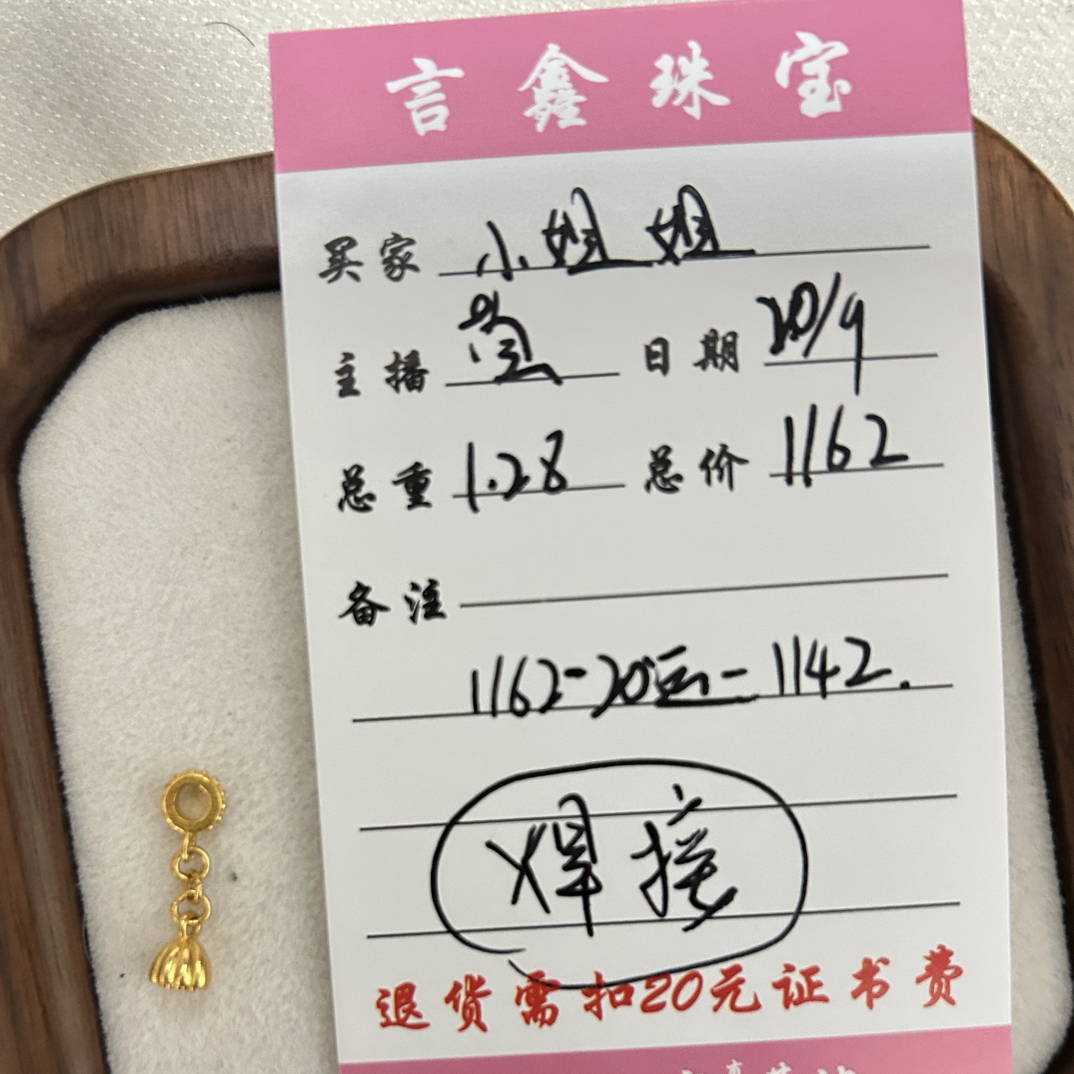 言鑫珠宝
买家 小姐姐
主播 日期 20/9
总重 1.28 总价 1162
备注
1162-20运=1142.
焊接
退货需扣20元证书费